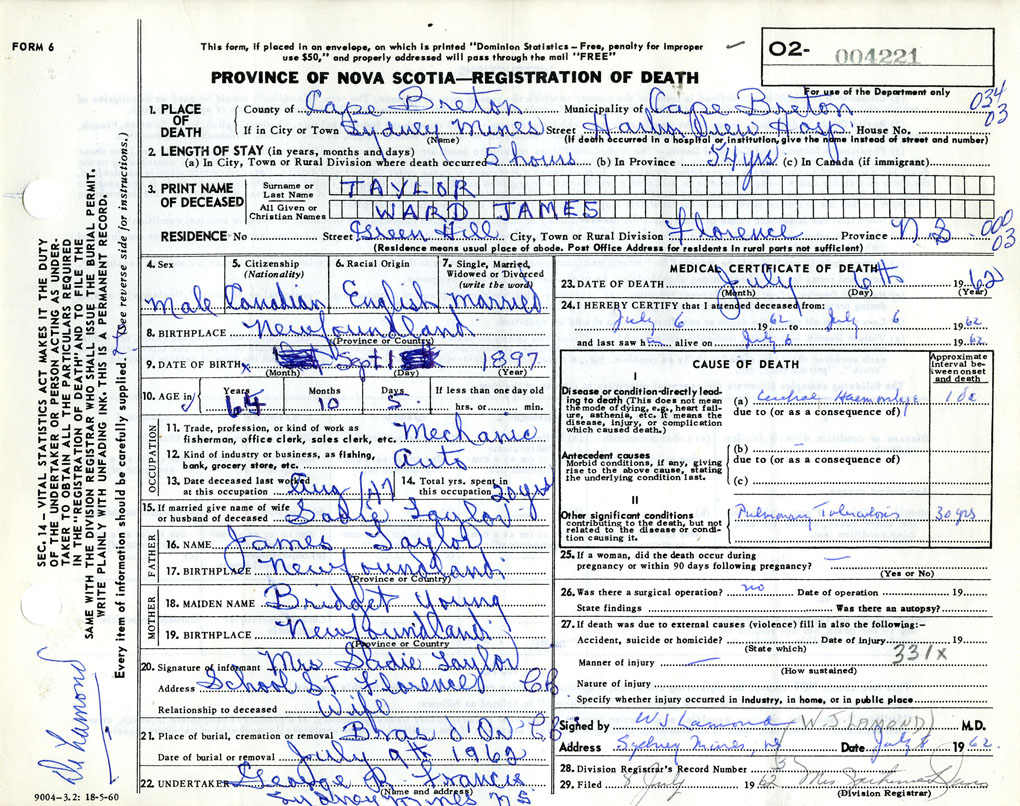 FORM 6
This form, if placed in an envelope, on which is printed "Dominion Statistics – Free, penalty for improper
use $50," and properly addressed will pass through the mail "FREE"
O2- 004221
For use of the Department only
PROVINCE OF NOVA SCOTIA—REGISTRATION OF DEATH
034
03
1. PLACE OF DEATH County of Cape Breton Municipality of Cape Breton
If in City or Town Sydney Mines Street Harbor View Hosp. House No.
(Name) (If death occurred in a hospital or institution, give name instead of street and number)
2. LENGTH OF STAY (in years, months and days)
(a) In City, Town or Rural Division where death occurred 5 hours (b) In Province 54 yrs (c) In Canada (if immigrant)
3. PRINT NAME OF DECEASED Surname or Last Name TAYLOR
All Given or Christian Names WARD JAMES
RESIDENCE No Street Green Hill City, Town or Rural Division Florence Province N.S
000
03
(Residence means usual place of abode. Post Office Address for residents in rural parts not sufficient)
4. Sex 5. Citizenship (Nationality) 6. Racial Origin 7. Single, Married, Widowed or Divorced (write the word)
Male Canadian English Married
8. BIRTHPLACE Newfoundland
(Province or Country)
9. DATE OF BIRTH Sept 1 1897
(Month) (Day) (Year)
10. AGE in Years Months Days If less than one day old
64 10 5 hrs. or min.
OCCUPATION
11. Trade, profession, or kind of work as
fisherman, office clerk, sales clerk, etc. Mechanic
12. Kind of industry or business, as fishing,
bank, grocery store, etc. Auto
13. Date deceased last worked at this occupation Aug /47 14. Total yrs. spent in this occupation 20 yrs
15. If married give name of wife
or husband of deceased Sadie Taylor
FATHER
16. NAME James Taylor
17. BIRTHPLACE Newfoundland
(Province or Country)
MOTHER
18. MAIDEN NAME Bridget Young
19. BIRTHPLACE Newfoundland
(Province or Country)
20. Signature of informant Mrs Sadie Taylor
Address School St Florence CB
Relationship to deceased Wife
21. Place of burial, cremation or removal Bras d'Or CB
Date of burial or removal July 9th 1962
22. UNDERTAKER George R Francis
(Name and address)
Sydney Mines NS
MEDICAL CERTIFICATE OF DEATH
23. DATE OF DEATH July 6th 1962
(Month) (Day) (Year)
24. I HEREBY CERTIFY that I attended deceased from:
July 6 1962 to July 6 1962
and last saw him alive on July 6 1962.
CAUSE OF DEATH
Approximate interval between onset and death
I
Disease or condition directly leading to death (This does not mean the mode of dying, e.g., heart failure, asthenia, etc. It means the disease, injury, or complication which caused death.)
(a) Cerebral Haemorrhage
due to (or as a consequence of)
Antecedent causes
Morbid conditions, if any, giving rise to the above cause, stating the underlying condition last.
(b) –
due to (or as a consequence of)
(c)
II
Other significant conditions
contributing to the death, but not related to the disease or condition causing it.
Pulmonary Tuberculosis 30 yrs
25. If a woman, did the death occur during
pregnancy or within 90 days following pregnancy? –
(Yes or No)
26. Was there a surgical operation? no Date of operation 19
State findings Was there an autopsy?
27. If death was due to external causes (violence) fill in also the following:–
Accident, suicide or homicide? Date of injury 19
(State which)
331X
Manner of injury –
(How sustained)
Nature of injury
Specify whether injury occurred in industry, in home, or in public place
Signed by W J Lamond (W. J. LAMOND) M.D.
Address Sydney Mines, NS Date July 8 1962.
28. Division Registrar's Record Number
29. Filed 8 July 1962 Mrs
(Division Registrar)
SEC. 14 – VITAL STATISTICS ACT MAKES IT THE DUTY
OF THE UNDERTAKER OR PERSON ACTING AS UNDER-
TAKER TO OBTAIN ALL THE PARTICULARS REQUIRED
IN THE "REGISTRATION OF DEATH" AND TO FILE THE
SAME WITH THE DIVISION REGISTRAR WHO SHALL ISSUE THE BURIAL PERMIT.
WRITE PLAINLY WITH UNFADING INK. THIS IS A PERMANENT RECORD.
Every item of information should be carefully supplied. (See reverse side for instructions.)
Dr Lamond
9004-3.2: 18-5-60